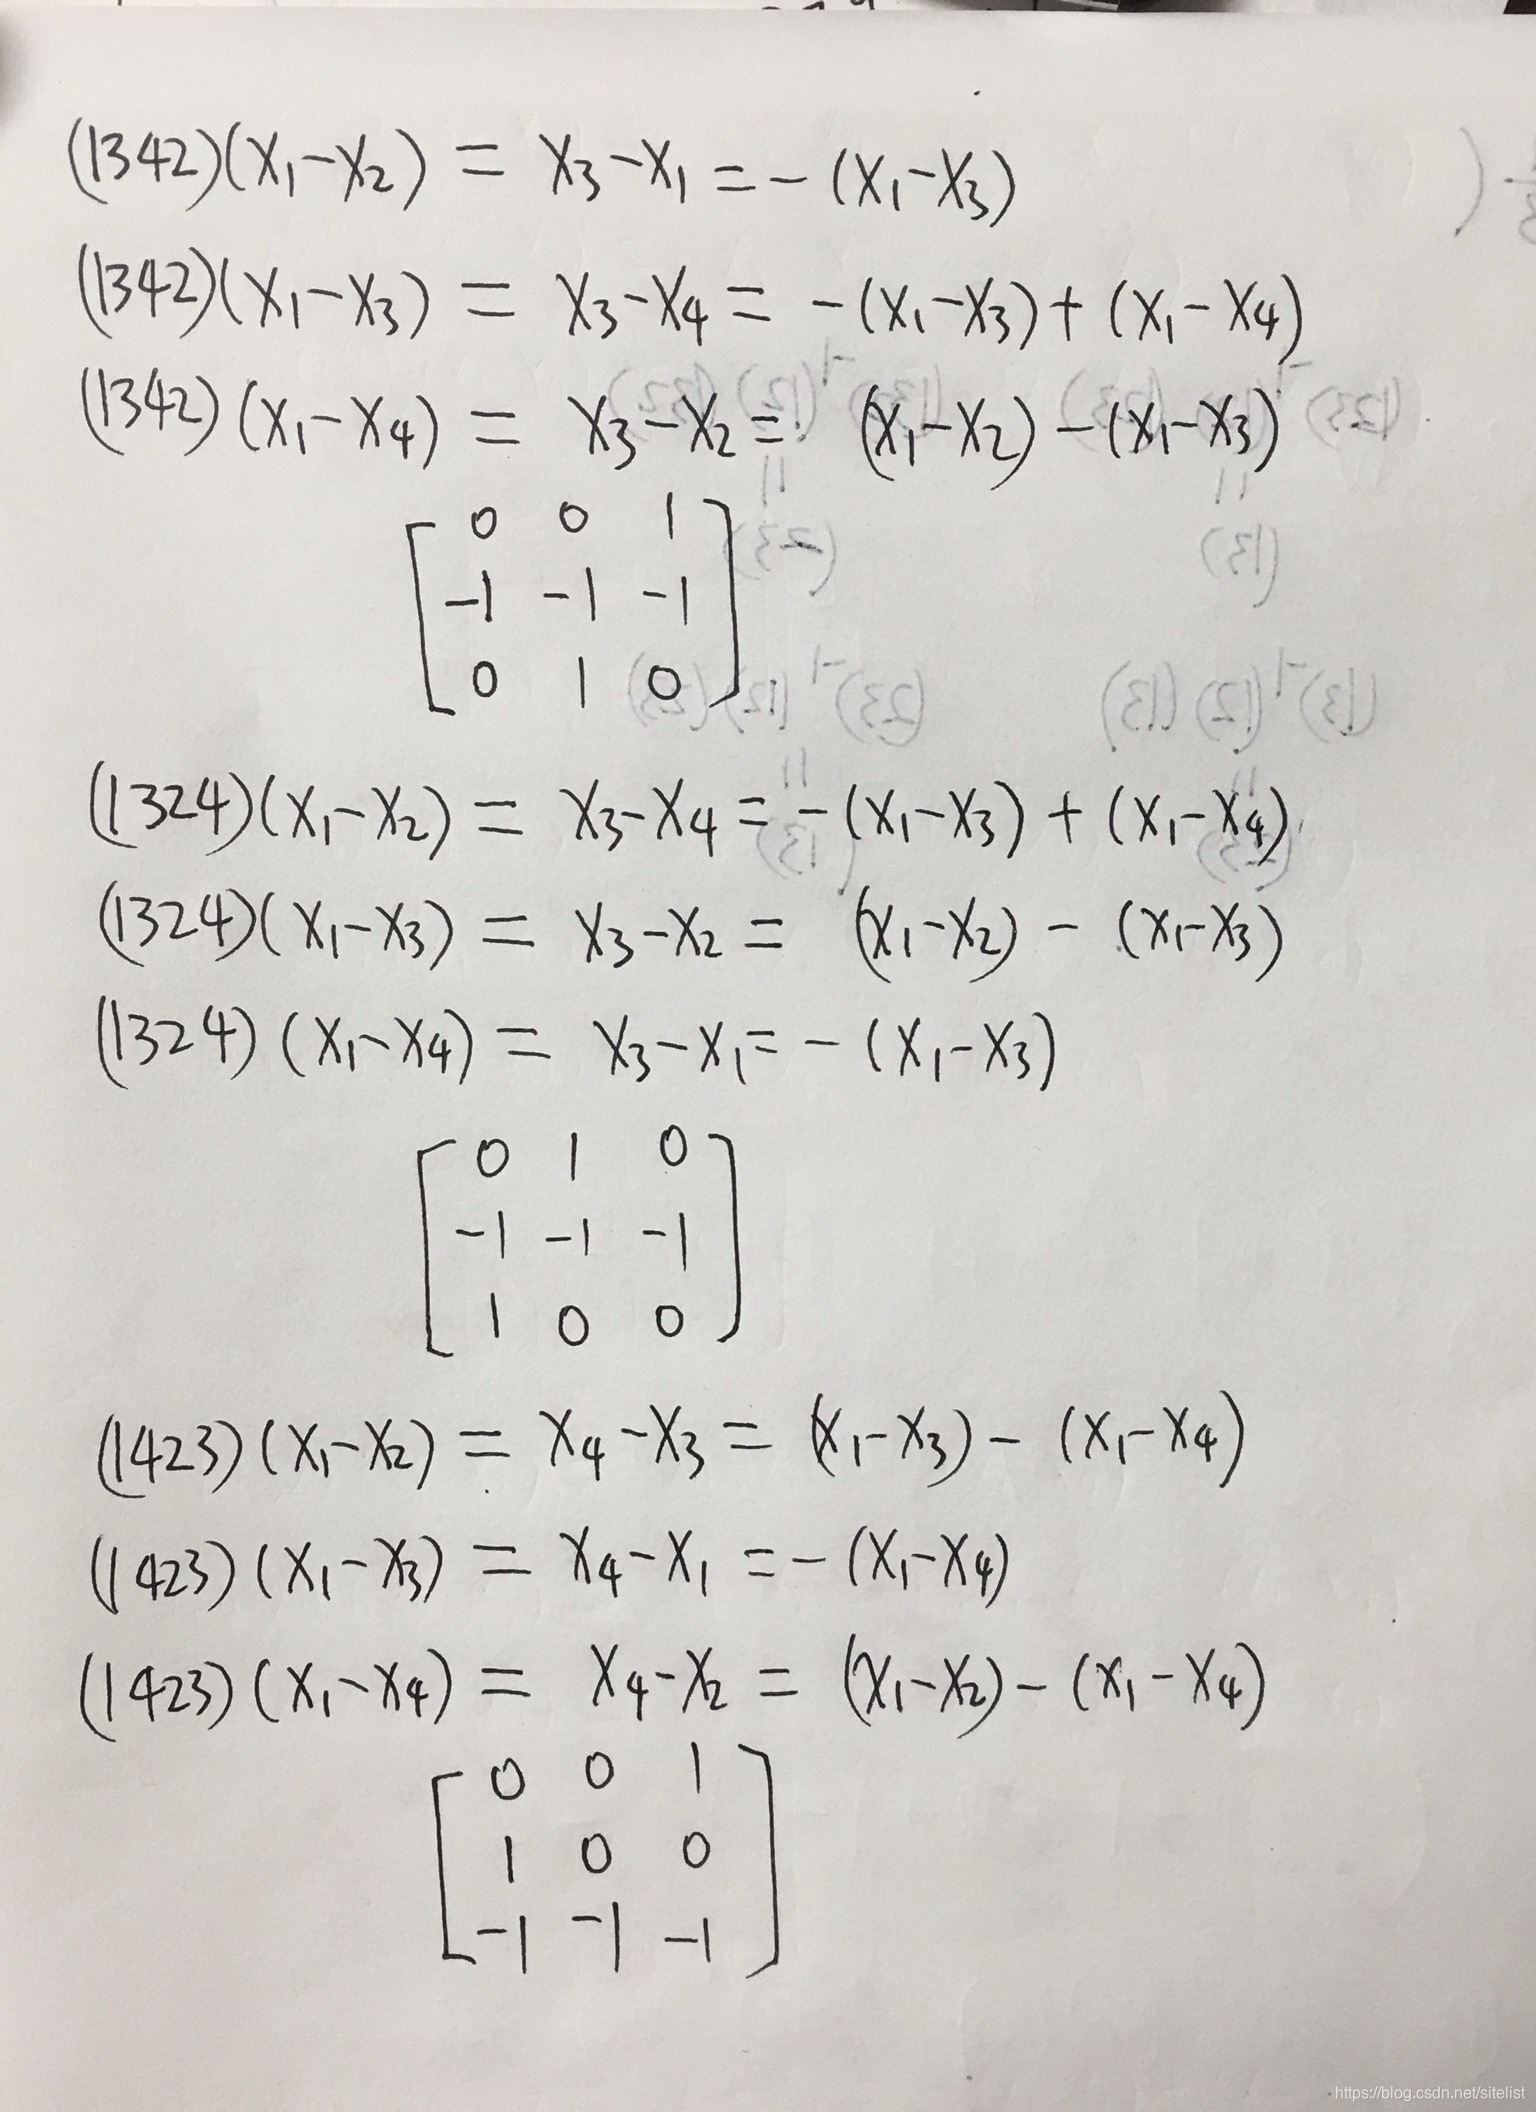 (1342)(x₁-x₂) = x₃-x₁ = -(x₁-x₃)
(1342)(x₁-x₃) = x₃-x₄ = -(x₁-x₃)+(x₁-x₄)
(1342)(x₁-x₄) = x₃-x₂ = (x₁-x₂)-(x₁-x₃)
0 0 1
-1 -1 -1
0 1 0
(1324)(x₁-x₂) = x₃-x₄ = -(x₁-x₃)+(x₁-x₄)
(1324)(x₁-x₃) = x₃-x₂ = (x₁-x₂)-(x₁-x₃)
(1324)(x₁-x₄) = x₃-x₁ = -(x₁-x₃)
0 1 0
-1 -1 -1
1 0 0
(1423)(x₁-x₂) = x₄-x₃ = (x₁-x₃)-(x₁-x₄)
(1423)(x₁-x₃) = x₄-x₁ = -(x₁-x₄)
(1423)(x₁-x₄) = x₄-x₂ = (x₁-x₂)-(x₁-x₄)
0 0 1
1 0 0
-1 -1 -1
https://blog.csdn.net/sitelist